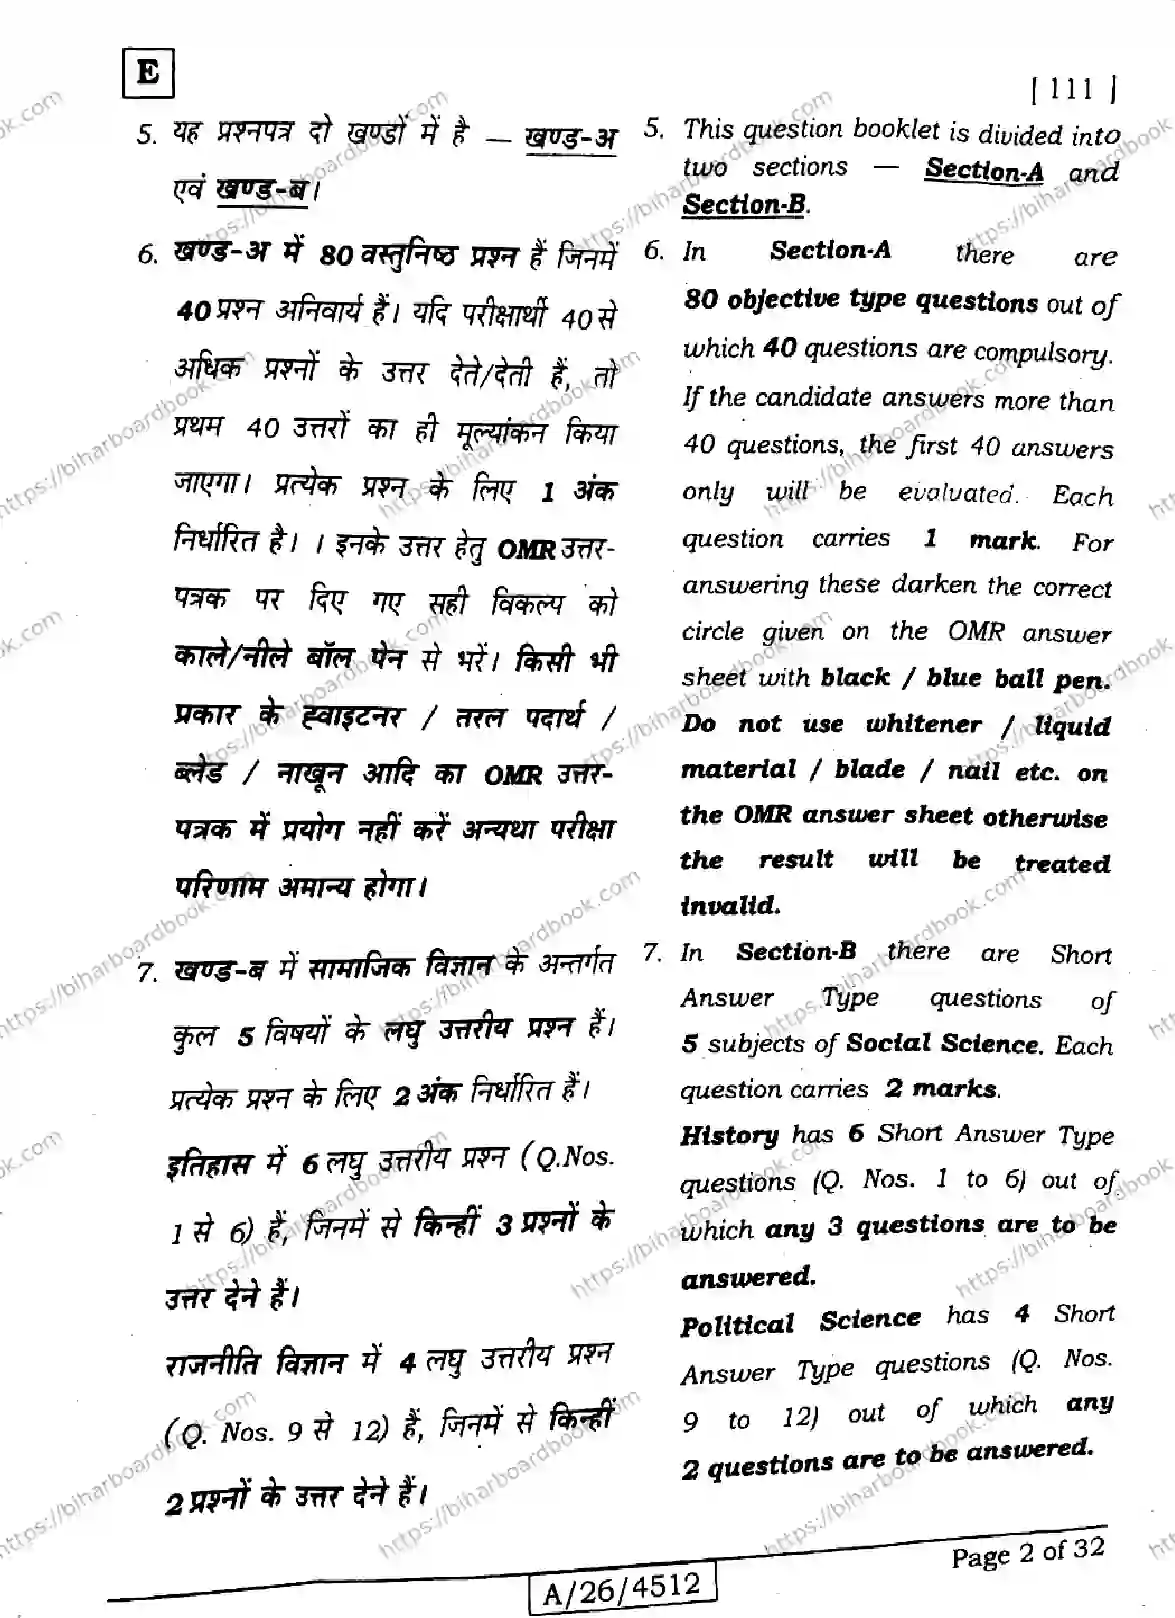 E
[ 111 ]
5. यह प्रश्नपत्र दो खण्डों में है — खण्ड-अ
एवं खण्ड-ब।
6. खण्ड-अ में 80 वस्तुनिष्ठ प्रश्न हैं जिनमें
40 प्रश्न अनिवार्य हैं। यदि परीक्षार्थी 40 से
अधिक प्रश्नों के उत्तर देते/देती हैं, तो
प्रथम 40 उत्तरों का ही मूल्यांकन किया
जाएगा। प्रत्येक प्रश्न के लिए 1 अंक
निर्धारित है। । इनके उत्तर हेतु OMR उत्तर-
पत्रक पर दिए गए सही विकल्प को
काले/नीले बॉल पेन से भरें। किसी भी
प्रकार के ह्वाइटनर / तरल पदार्थ /
ब्लेड / नाखून आदि का OMR उत्तर-
पत्रक में प्रयोग नहीं करें अन्यथा परीक्षा
परिणाम अमान्य होगा।
7. खण्ड-ब में सामाजिक विज्ञान के अन्तर्गत
कुल 5 विषयों के लघु उत्तरीय प्रश्न हैं।
प्रत्येक प्रश्न के लिए 2 अंक निर्धारित हैं।
इतिहास में 6 लघु उत्तरीय प्रश्न (Q.Nos.
1 से 6) हैं, जिनमें से किन्हीं 3 प्रश्नों के
उत्तर देने हैं।
राजनीति विज्ञान में 4 लघु उत्तरीय प्रश्न
(Q. Nos. 9 से 12) हैं, जिनमें से किन्हीं
2 प्रश्नों के उत्तर देने हैं।
5. This question booklet is divided into
two sections — Section-A and
Section-B.
6. In Section-A there are
80 objective type questions out of
which 40 questions are compulsory.
If the candidate answers more than
40 questions, the first 40 answers
only will be evaluated. Each
question carries 1 mark. For
answering these darken the correct
circle given on the OMR answer
sheet with black / blue ball pen.
Do not use whitener / liquid
material / blade / nail etc. on
the OMR answer sheet otherwise
the result will be treated
invalid.
7. In Section-B there are Short
Answer Type questions of
5 subjects of Social Science. Each
question carries 2 marks.
History has 6 Short Answer Type
questions (Q. Nos. 1 to 6) out of
which any 3 questions are to be
answered.
Political Science has 4 Short
Answer Type questions (Q. Nos.
9 to 12) out of which any
2 questions are to be answered.
Page 2 of 32
A/26/4512
https://biharboardbook.com